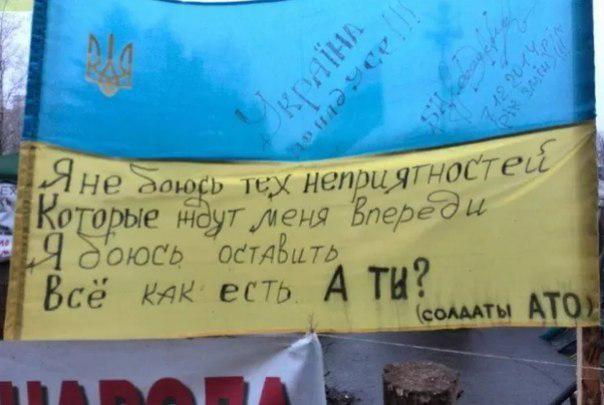 Україна
понад усе!!!
7.12.2014
Я не боюсь тех неприятностей
Которые ждут меня впереди
Я боюсь оставить
Всё как есть. А ТЫ?
(солдаты АТО)
НАРОДА